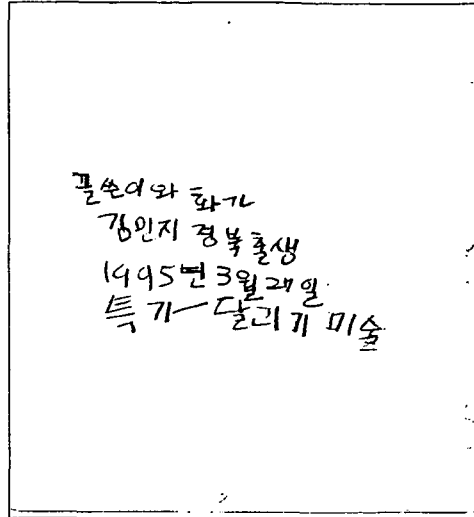 글쓴이와 화가
김민지 경북출생
1995년 3월 27일
특기-달리기 미술